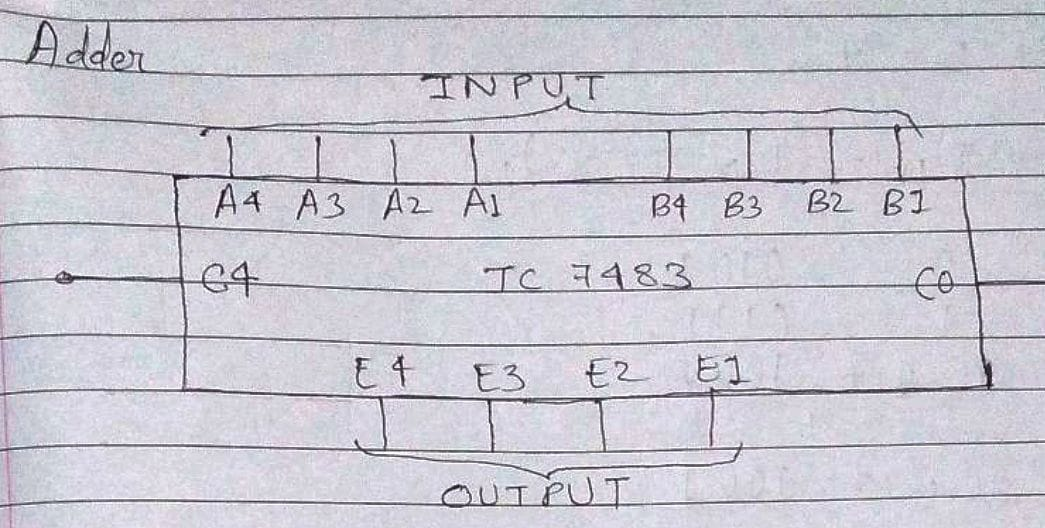 Adder
INPUT
A4 A3 A2 A1 B4 B3 B2 B1
C4 IC 7483 C0
E4 E3 E2 E1
OUTPUT